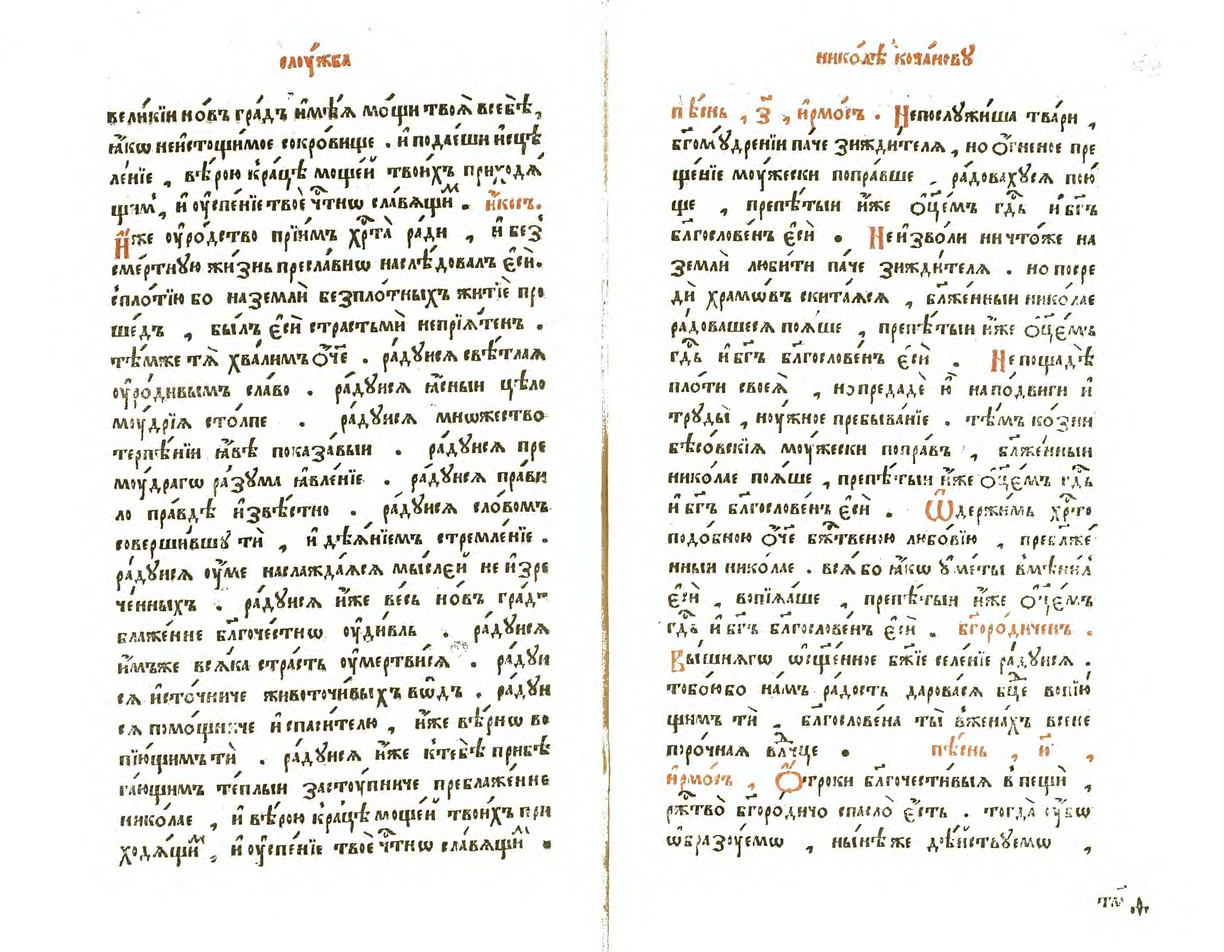 слоу́жба
вели́кїи но́въ гра́дъ и҆мѣ́ѧ мо́щи твоѧ̀ всебѣ̀,
ꙗ҆́кѡ неи҆стощи́мое сокро́вище . и҆ подае́ши и҆сцѣ
ле́нїе , вѣ́рою кра́цѣ моще́й твои́хъ приходѧ́
щимⷨ, и҆ оу҆спе́нїе твоѐ чⷭ҇тнѡ сла́вѧщиⷨ . и҆́косъ.
И҆́же оу҆ро́дство прїи́мъ хрⷭ҇та̀ ра́ди , и҆ без
сме́ртную жи́знь пресла́внѡ наслѣ́довалъ є҆сѝ.
сплотїю бо наземлѝ безпло́тныхъ житїѐ про
ше́дъ , бы́лъ є҆сѝ страстьмѝ непрїѧ́тенъ .
тѣ́мже тѧ̀ хва́лимъ ѻ҆́ч҃е . ра́дуисѧ свѣ́тлаѧ
оу҆ро́дивымъ сла́во . ра́дуисѧ ꙗ҆́сныи цѣло
моу́дрїѧ сто́лпе . ра́дуисѧ мно́жество
терпѣ́нїи ꙗ҆́вѣ показа́выи . ра́дуисѧ пре
моу́драгѡ ра́зума ꙗ҆вле́нїе . ра́дуисѧ пра́ви
ло пра́вдѣ и҆звѣ́стно . ра́дуисѧ сло́вомъ
соверши́вшꙋ тѝ , и҆ дѣѧ́нїемъ стремле́нїе .
ра́дꙋисѧ оу҆́ме наслажда́ѧсѧ мы́слей не и҆зре
че́нныхъ . ра́дꙋисѧ и҆́же весь но́въ гра́дъ
блаже́нне бл҃гоче́стнѡ оу҆диⷡ҇ль . ра́дꙋисѧ
и҆́мъже всѧ́ка стра́сть оу҆мертви́сѧ . ра́дꙋи
сѧ и҆сто́чниче животочи́выхъ во́дъ . ра́дꙋи
сѧ помо́щниче и҆ спаси́телю , и҆́же вѣ́рнѡ во
пїю́щимъ тѝ . ра́дꙋисѧ и҆́же ктебѣ̀ прибѣ
га́ющимъ те́плыи засту́пниче преблаже́нне
нико́лае , и҆ вѣ́рою кра́цѣ моще́й твои́хъ при
ходѧ́щиⷨ, и҆ оу҆спе́нїе твоѐ чⷭ҇тнѡ сла́вѧщиⷨ .
нико́лѣ коча́новꙋ
пѣ́снь , з҃ , и҆рмо́съ . Непослужи́ша тва́ри ,
бг҃омꙋ́дренїи па́че зижди́телѧ , но ѻ҆́гненое пре
ще́нїе моу́жески попра́вше , ра́довахусѧ пою́
ще , препѣ́тыи и҆́же ѻ҆ц҃е́мъ гдⷭ҇ь и҆ бг҃ъ
благослове́нъ є҆сѝ . Неи҆зво́ли ничто́же на
землѝ люби́ти па́че зижди́телѧ . но посре
дѝ хра́мѡвъ скита́ѧсѧ , блаже́нныи нико́лае
ра́довашесѧ поѧ́ше , препѣ́тыи и҆́же ѻ҆ц҃е́мъ
гдⷭ҇ь и҆ бг҃ъ благослове́нъ є҆сѝ . Непощадѣ̀
пло́ти своеѧ̀ , нопредадѐ ю҆̀ напо́двиги и҆
труды̀ , ноу́жное пребыва́нїе . тѣ́мъ ко́зни
бѣсо́вскїѧ моу́жески попра́въ , блаже́нныи
нико́лае поѧ́ше , препѣ́тыи и҆́же ѻ҆ц҃е́мъ гдⷭ҇ь
и҆ бг҃ъ благослове́нъ є҆сѝ . Ѿдержи́мь хрⷭ҇то
подо́бною ѻ҆́ч҃е бж҃ственою любо́вїю , преблаже́
нныи нико́лае . всѧ̀ бо ꙗ҆́кѡ ᲂу҆ме́ты вмѣни́лъ
є҆сѝ , вопїѧ́ше , препѣ́тыи и҆́же ѻ҆ц҃е́мъ
гдⷭ҇ь и҆ бг҃ъ благослове́нъ є҆сѝ . бг҃оро́диченъ .
Вы́шнѧгѡ ѡ҆сщ҃е́нное бж҃їе селе́нїе ра́дуисѧ .
тобо́юбо на́мъ ра́дость дарова́сѧ бц҃е вопїю́
щимъ тѝ , благослове́на ты̀ вжена́хъ всене
поро́чнаѧ влⷣчце . пѣ́снь , и҃ ,
и҆рмо́съ , Ѻ҆́троки благочести́выѧ впещѝ ,
ржⷭ҇тво̀ бг҃оро́дичо спасло̀ є҆́сть . тогда̀ ᲂу҆́бѡ
ѡ҆бразоуемѡ , ны́нѣ же дѣ́йствуемѡ ,